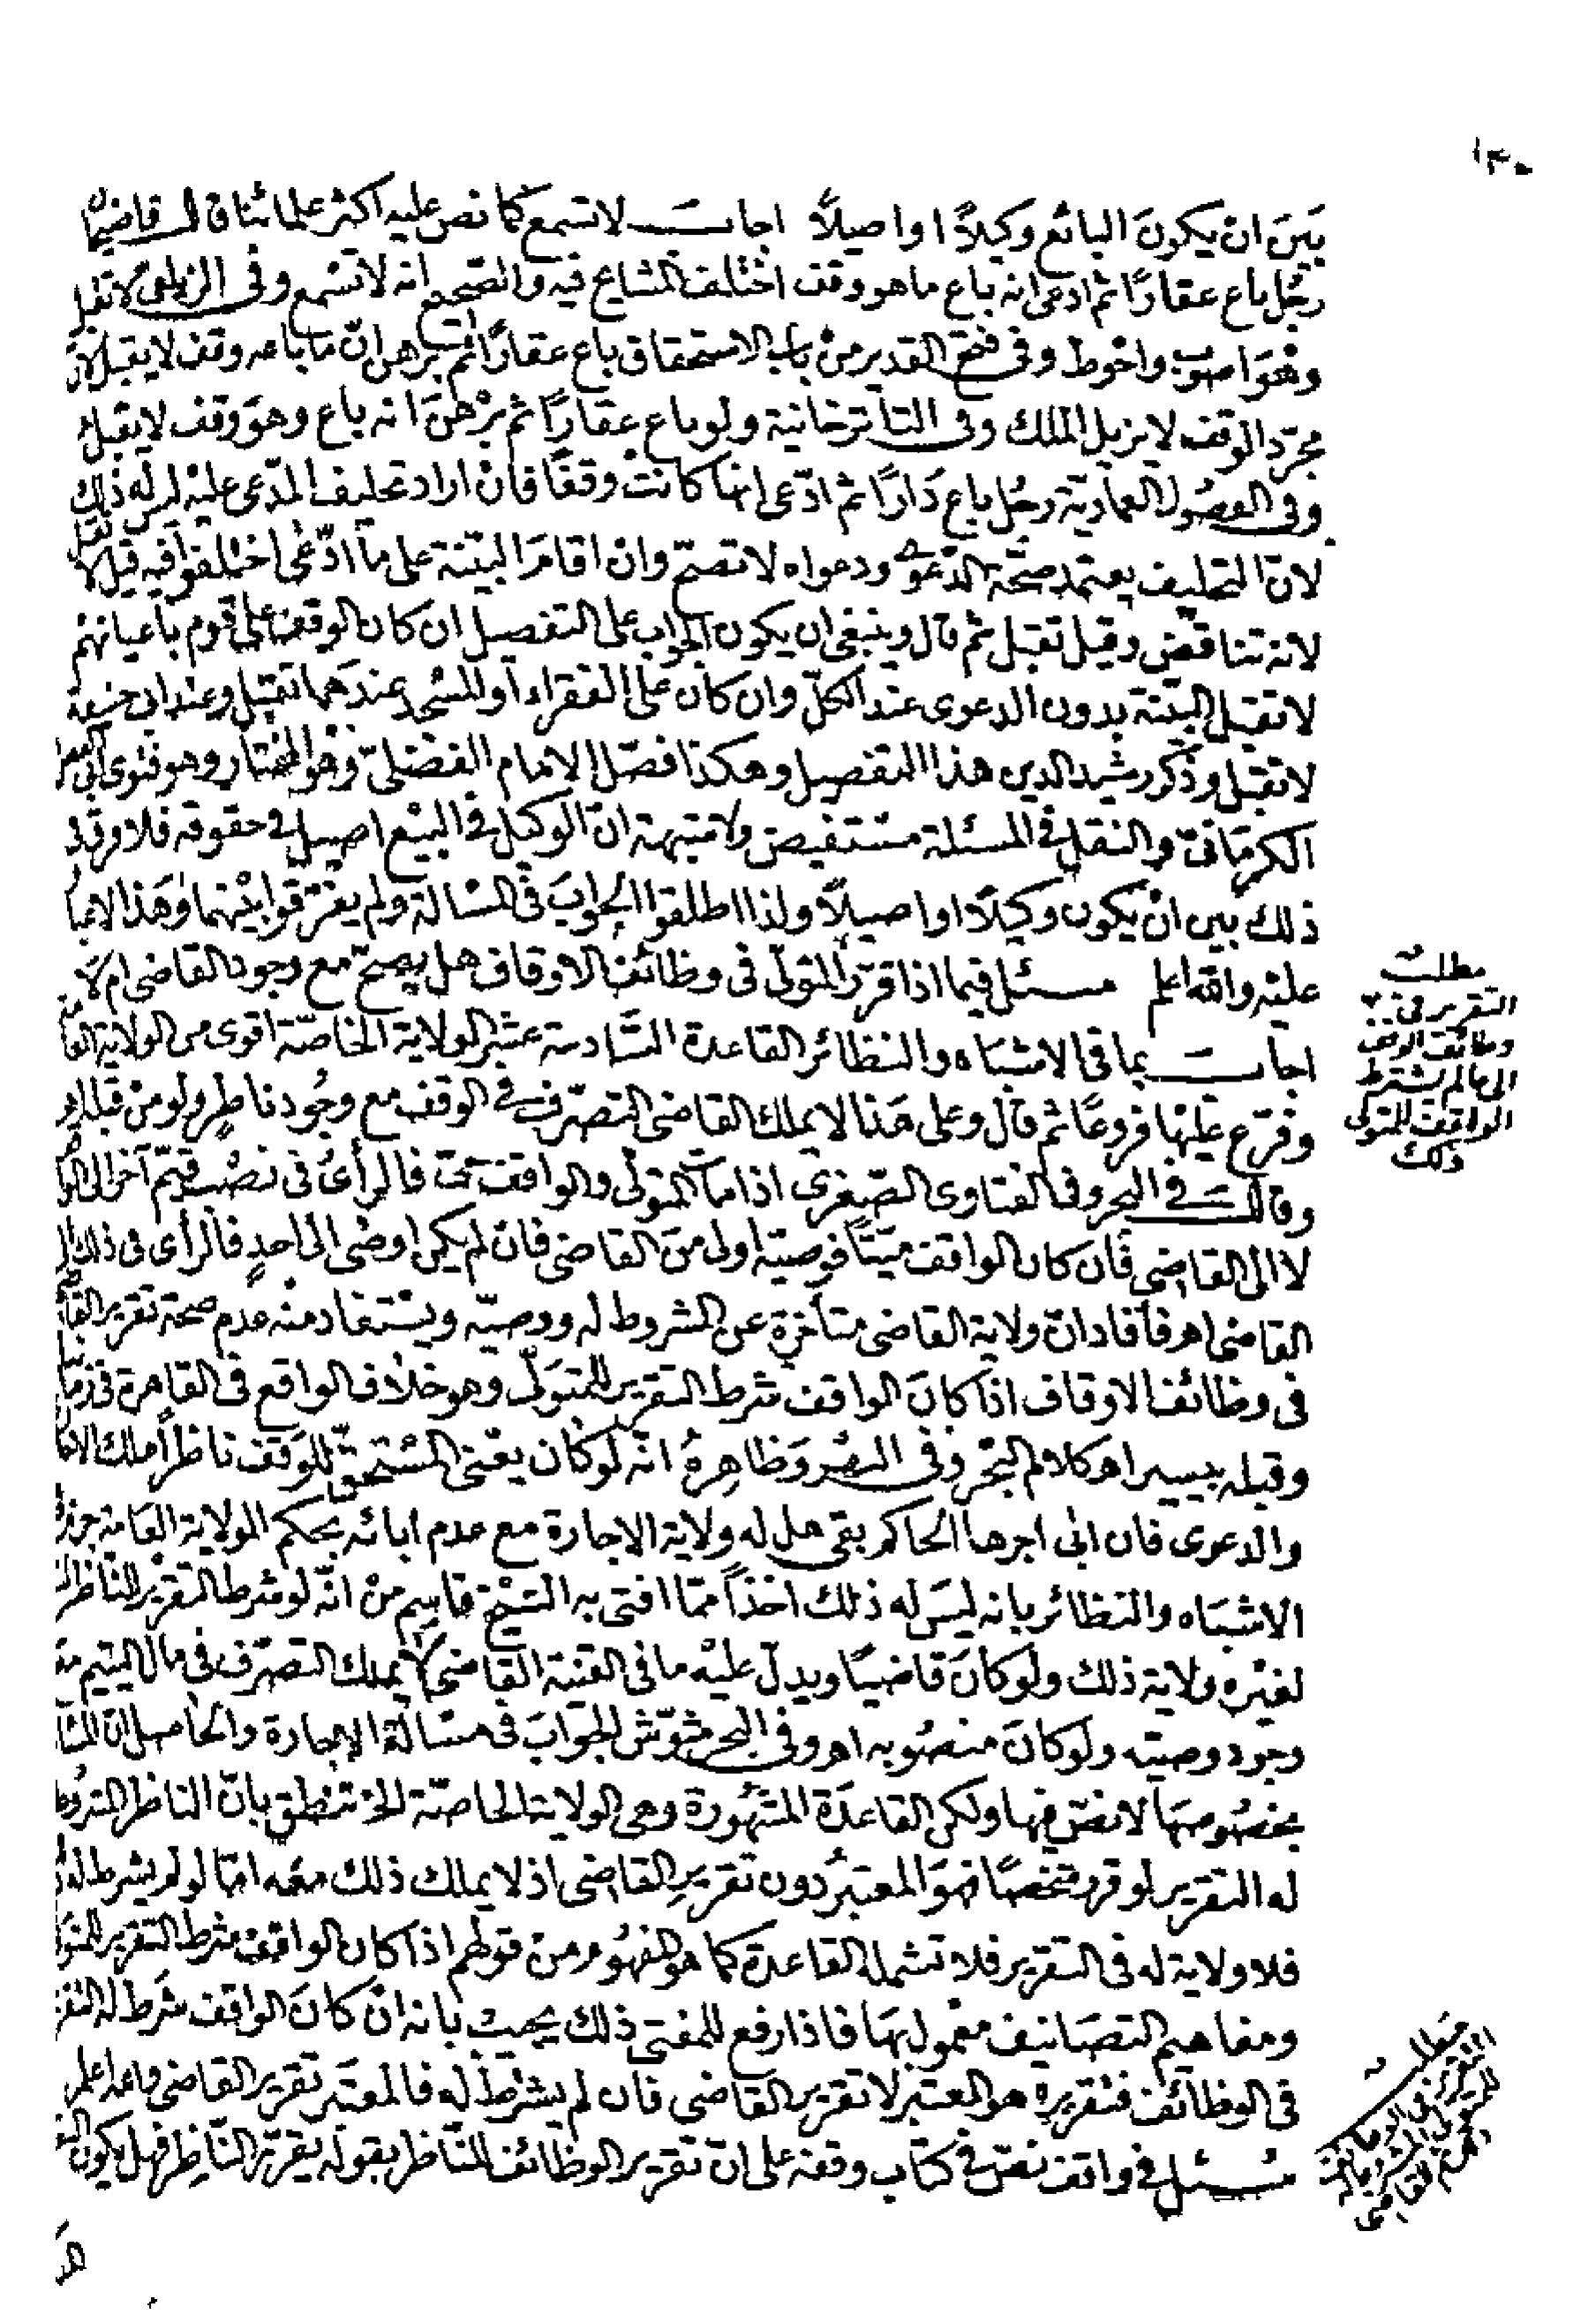 ١٣٠
بَينَ انْ يكونَ البائع وكيلاً او اصيلاً اجاب لا تسمع كما نص عليه اكثر علمائنا قال قاضيخان
رجُل باع عقارًا ثم ادعى انه باع ما هو وقف اختلف المشايخ فيه والصحيح انه لا تسمع وفى الزيلعى لا تقبل
وهُوَ اصوب واحْوط وفى فتح القدير منْ باب الاستحقاق باع عقارًا ثم برهن انّ ما باعه وقف لا يقبل لانّ
مجرّد الوقف لا يزيل الملك وفى التاترخانية ولو باع عقارًا ثم برْهنَ انه باع وهوَ وقف لا يقبل
وفى الفصُول العمادية رجُل باع دَارًا ثم ادّعى انها كانت وقفًا فانْ اراد تحليف المدّعى عليْه ليس له ذلك
لانّ التحليف يعتمد صحّة الدّعوى ودعواه لا تصحّ وانْ اقامَ البيّنة على ما ادّعى اختلفوا فيه قيل لا تقبل
لانه تناقض وقيل تقبل ثم قال وينبغى ان يكون الجواب على التفصيل ان كان الوقف على قوم باعيانهمْ
لا تقبل البيّنة بدون الدعوى عند الكلّ وان كان على الفقراء او المسْجد عندهَما تقبل وعند ابى حنيفة
لا تقبل وذكر رشيد الدين هذا التفصيل وهكذا فصّل الامام الفضلىّ وهُو المختار وهو فتوى ابى الفضل
الكرمَانىّ والنقل فى المسئلة مستفيض ولا شبهة انّ الوكيل فى البيْع اصيل فى حقوقه فلا فرق فى
ذلك بين انْ يكون وكيلاً او اصيلاً ولذا اطلقوا الجوابَ فى المسْالة ولم يفرّقوا بيْنهما وهَذا لا غبار
عليْه والله اعلم سئل فيما اذا قرّر المتولّى فى وظائف الاوقاف هل يصحّ مع وجود القاضى ام لا
اجاب بما فى الاشبَاه والنظائر القاعدة السّادسة عشر الولاية الخاصّة اقوى من الولاية العامّة
وفرّع عليْها فروعًا ثم قال وعلى هَذا لا يملك القاضى التصرّف فى الوقف مع وجُود ناظرٍ ولو من قبله اهـ
وقال فى البحر وفى الفتاوى الصّغرى اذا مات المتولّى والواقف حىّ فالرأىُ فى نصْب قيّم آخر الى الواقف
لا الى القاضى فان كان الواقف ميّتًا فوصيّه اولى منَ القاضى فان لم يكن اوصى الى احدٍ فالرأى فى ذلك الى
القاضى اهـ فافاد انّ ولاية القاضى متأخرة عن المشروط له ووصيّه ويسْتفاد منه عدم صحة تقرير القاضى
فى وظائف الاوقاف اذا كانَ الواقف شرط التقرير للمتوَلّى وهو خلاف الواقع فى القاهرة فى زماننا
وقبله بيسير اهـ كلام البَحْر وفى النهْر وَظاهِرهُ انّه لوكان يعْنى المسْتحقّ للوَقف ناظراً ملك الايجار
والدعوى فان ابى اجرها الحاكم بقى هل له ولاية الاجارة مع عدم ابائه بحكم الولاية العَامّة جزم فى
الاشبَاه والنظائر بانه ليسَ له ذلك اخذاً ممّا افتى به الشيْخ قاسِم منْ انّه لو شرط التقرير للناظر ليس
لغيْره ولاية ذلك ولوكانَ قاضيًا ويدلّ عليْه ما فى القنية القاضى لا يملك التصرّف فى مال اليتيم مَع
وجود وصيّه ولوكانَ منصُوبه اهـ وفى البحر شوّش الجوَابَ فى مسْالَة الاجارة والحاصل انّ المسْالة
بخصُوصِهَا لا نصّ فيها ولكن القاعدَة المشْهُورة وهى الولاية الخاصّة الخ تنْطق بانّ الناظر المشرُوط
له التقرير لو قرر شخصًا فهوَ المعتبَرُ دون تقريرِ القاضى اذ لا يملك ذلك معَه امّا لو لم يشرط له
فلا ولاية له فى التقرير فلا تشمله القاعدة كما هو المفهُوم منْ قولهم اذا كان الواقف شرط التقرير للمتولى
ومفاهيم التصَانيف معْمول بهَا فاذا رفع للمفتى ذلك يجيبُ بانه انْ كانَ الواقف شرَط له التقرير
فى الوظائف فتقريره هو المعتبر لا تقرير القاضى فان لم يشْرط له فالمعتبَر تقرير القاضى والله اعلم
سُئل فى واقف نصّ فى كتاب وقفه على انّ تقرير الوظائف للنّاظر بقوله يقرّر النّاظِر فهل يكون
مطلب
التقرير فى
وظائف الوقف
الى عالم يشترط
الواقف للمتولى
ذلك